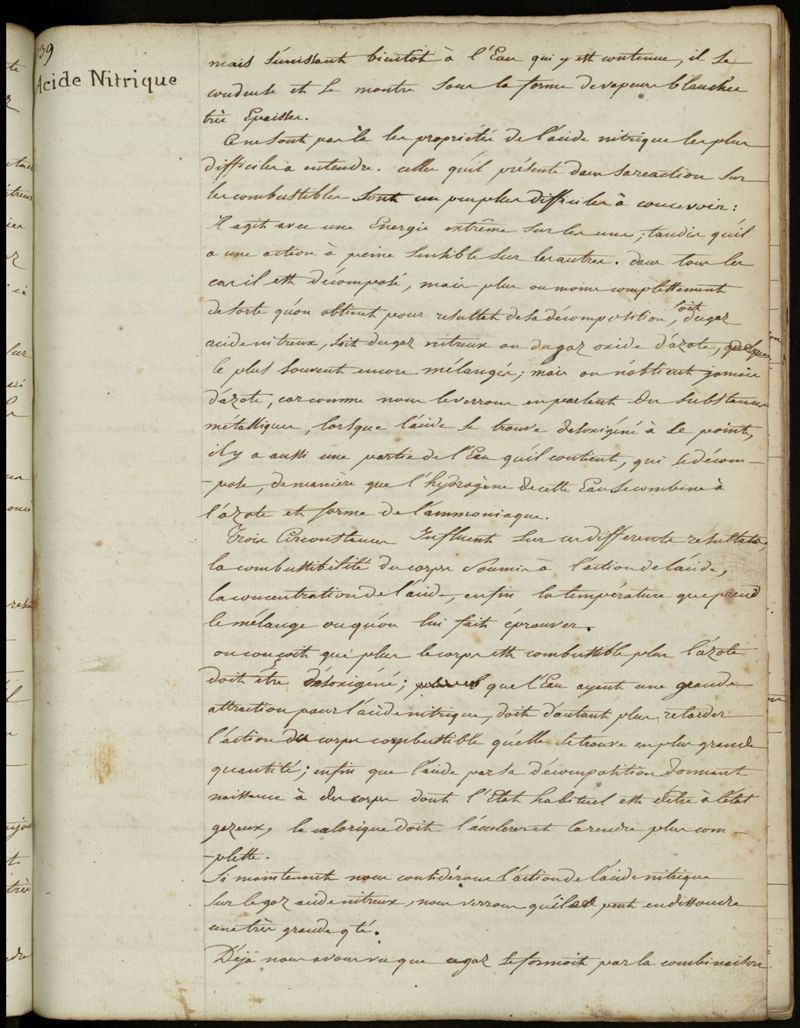 39
Acide Nitrique
mais s'unissant bientôt à l'Eau qui y est contenue, il se
condense et se montre sous la forme de vapeurs blanches
très Epaisses.
Ce ne sont pas là les propriétés de l'acide nitrique les plus
difficiles a entendre. celles qu'il présente dans sa reaction sur
les combustibles sont un peu plus difficiles à concevoir :
il agit avec une Energie extrême sur les unes ; tandis qu'il
a une action à peine sensible sur les autres. dans tous les
cas il est décomposé, mais plus ou moins complettement
de sorte qu'on obtient pour resultat de sa décomposition, soit du gaz
acide nitreux, soit du gaz nitreux ou du gaz oxide d'azote,
le plus souvent encore mélangés ; mais on n'obtient jamais
d'azote, car comme nous le verrons en parlant des substances
métalliques, lorsque l'acide se trouve désoxigéné à ce point,
il y a aussi une partie de l'Eau qu'il contient, qui se décom-
-pose, de manière que l'hydrogène de cette Eau se combine à
l'azote et forme de l'ammoniaque.
Trois Circonstances Influent sur ces differents résultats,
la combustibilité du corps soumis à l'action de l'acide,
la concentration de l'acide, enfin la température que prend
le mélange ou qu'on lui fait éprouver.
on conçoit que plus le corps est combustible plus l'azote
doit être désoxigené ; que l'Eau ayant une grande
attraction pour l'acide nitrique, doit d'autant plus retarder
l'action du corps combustible qu'elle se trouve en plus grande
quantité ; enfin que l'acide par sa décomposition donnant
naissance à des corps dont l'Etat habituel est d'être à l'état
gazeux, le calorique doit l'accelerer et la rendre plus com-
-plette.
Si maintenant nous considérons l'action de l'acide nitrique
sur le gaz acide nitreux, nous verrons qu'il peut en dissoudre
une très grande qté.
Déjà nous avons vu que ce gaz se formoit par la combinaison